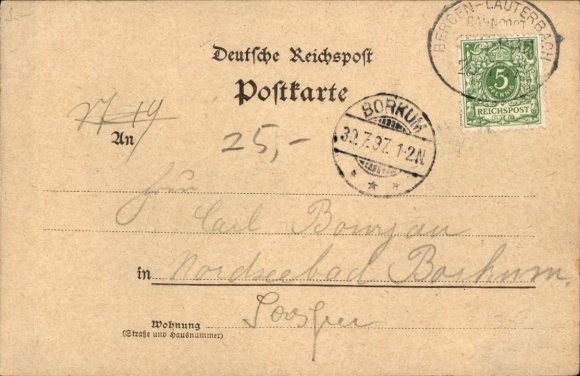 BERGEN-LAUTERBACH
BAHNPOST
5
REICHSPOST
Deutsche Reichspost
Postkarte
17 19
An
25,-
BORKUM
30.7.97.1-2N
* * *
Herrn
Carl
in Nordseebad Borkum.
Wohnung
(Straße und Hausnummer)